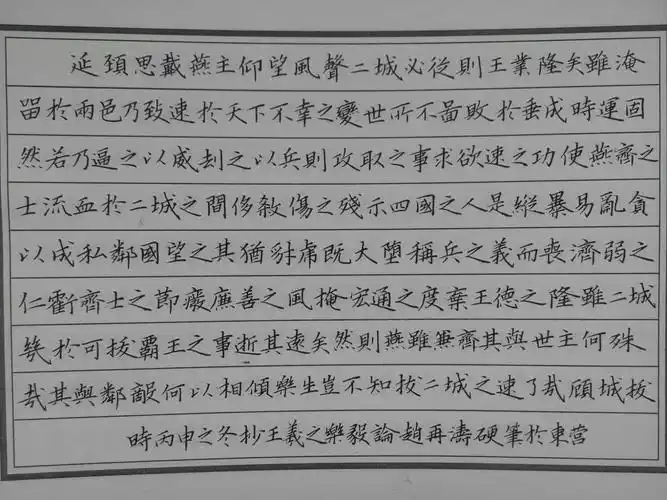 延頚思戴燕主仰望風聲二城必從則王業隆矣雖淹
留於兩邑乃致速於天下不幸之變世所不啚敗於垂成時運固
然若乃逼之以威刦之以兵則攻取之事求欲速之功使燕齊之
士流血於二城之間侈敘傷之殘示四國之人是縱暴易亂貪
以成私鄰國望之其猶豺虎既大墮稱兵之義而喪濟弱之
仁虧齊士之節廢廉善之風掩宏通之度棄王德之隆雖二城
幾於可拔霸王之事逝其遠矣然則燕雖兼齊其與世主何殊
哉其與鄰敵何以相傾樂生豈不知拔二城之速了哉顧城拔
時丙申之冬抄王羲之樂毅論趙再濤硬筆於東营